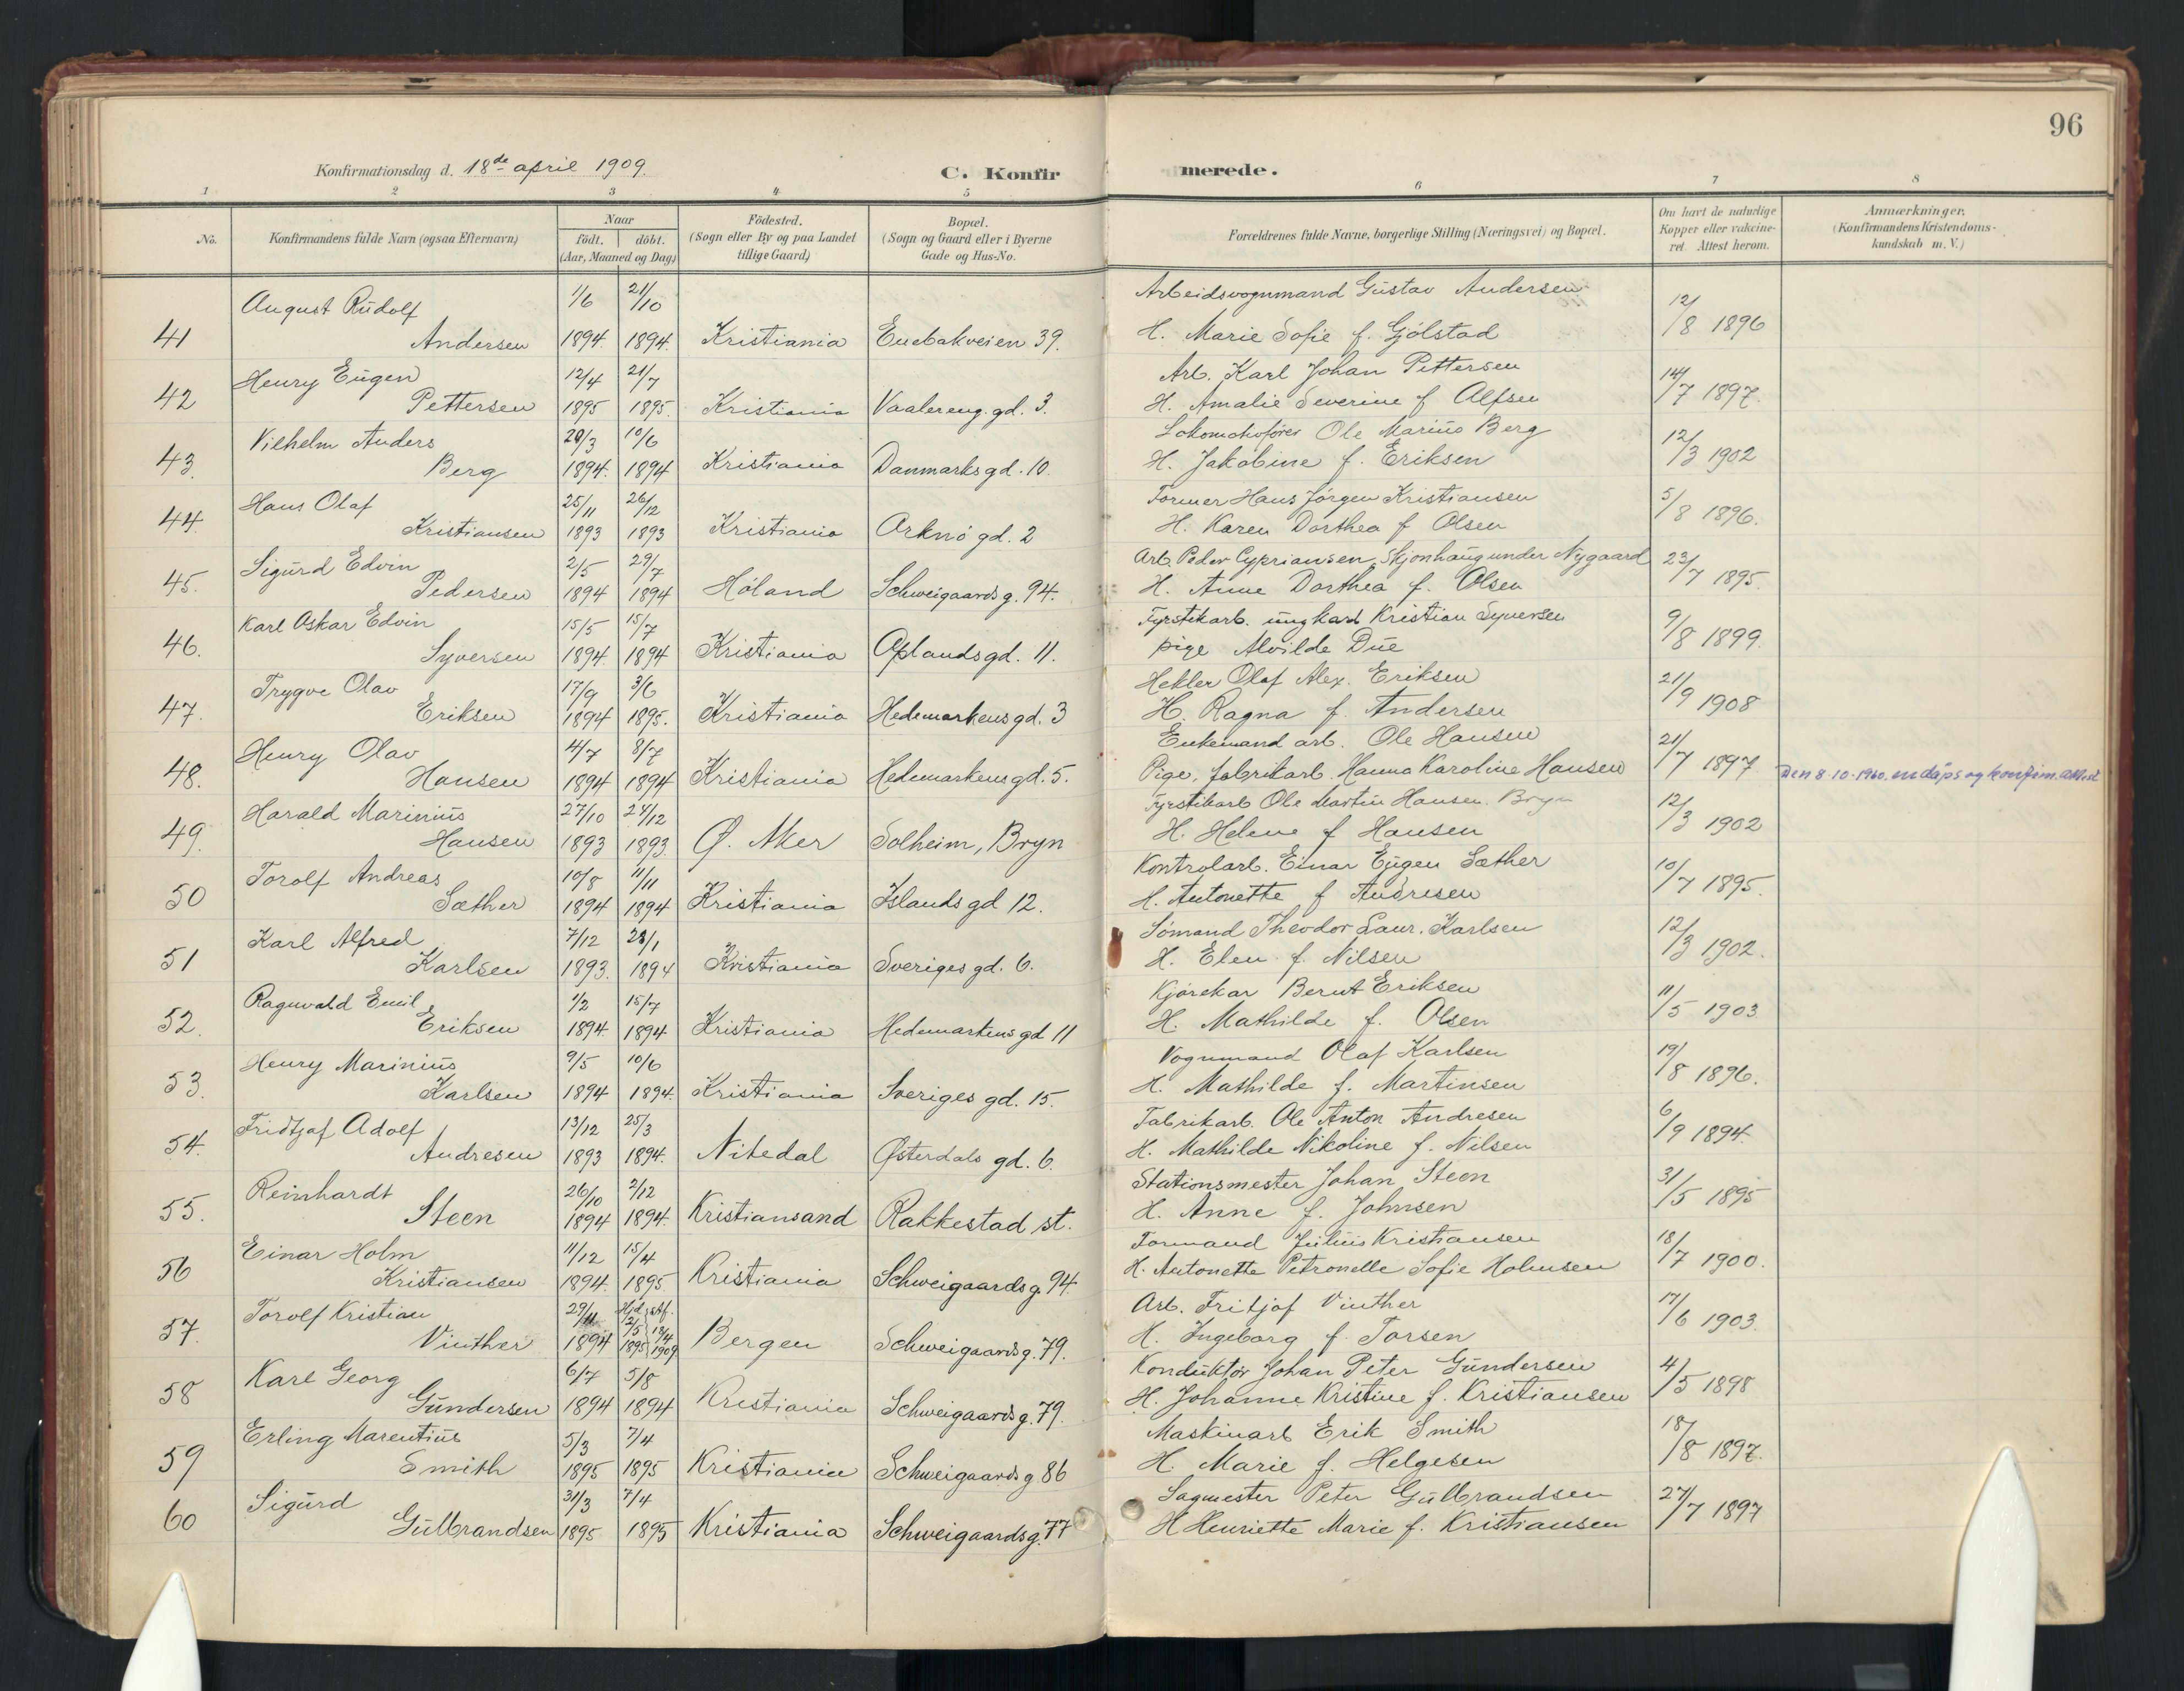 96
Konfirmationsdag d. 18de april 1909.
C. Konfirmerede.
1 2 3 4 5 6 7 8
No.
Konfirmandens fulde Navn (ogsaa Efternavn)
Naar
födt. döbt.
(Aar, Maaned og Dag)
Födested.
(Sogn eller By og paa Landet
tillige Gaard)
Bopæl.
(Sogn og Gaard eller i Byerne
Gade og Hus-No.
Forældrenes fulde Navne, borgerlige Stilling (Næringsvei) og Bopæl.
Om havt de naturlige
Kopper eller vakcine-
ret. Attest herom.
Anmærkninger.
(Konfirmandens Kristendoms-
kundskab m. V.)
August Rudolf 1/6 21/10 Arbeidsvognmand Gustav Andersen 12/8 1896
41 Andersen 1894. 1894. Kristiania Enebakveien 39. H. Marie Sofie f. Gjölstad
Henry Eugen 12/4 21/7 Arb. Karl Johan Pettersen 14/7 1897.
42 Pettersen 1895 1895. Kristiania Vaalereng. gd. 3. H. Amalie Severine f Alfsen
Vilhelm Anders 20/3 10/6 Lokomotivförer Ole Marius Berg 12/3 1902
43. Berg 1894. 1894 Kristiania Danmarks gd. 10. H. Jakobine f. Eriksen
Hans Olaf 25/11 26/12 Former Hans Jörgen Kristiansen 5/8 1896.
44. Kristiansen 1893 1893 Kristiania Arknö gd. 2 H. Karen Dorthea f Olsen
Sigurd Edvin 2/5 29/7 Arb. Peder Cypriansen, Skjönhaug under Nygaard 23/7 1895.
45. Pedersen 1894 1894 Höland Schweigaards g. 94. H. Anne Dorthea f. Olsen
Karl Oskar Edvin 15/5 15/7 Fyrstikarb. ungkarl Kristian Syversen 9/8 1899.
46. Syversen 1894. 1894 Kristiania Oplands gd. 11. pige Alvilde Due
Trygve Olav 17/9 3/6 Hekler Olaf Alex. Eriksen 21/9 1908
47. Eriksen 1894 1895. Kristiania Hedemarkens gd. 3 H. Ragna f. Andersen
Henry Olav 4/7 8/7 Enkemand arb. Ole Hansen 21/7 1897
48. Hansen 1894 1894 Kristiania Hedemarkens gd. 5. Pige, fabrikarb. Hanna Karoline Hansen Den 8-10-1960. en dåps og konfirm. attest
Harald Marinius 27/10 24/12 Fyrstikarb Ole Martin Hansen. Bryn 12/3 1902
49. Hansen 1893 1893. Ø. Aker Solheim, Bryn H. Helene f Hansen
Torolf Andreas 10/8 11/11 Kontrolarb. Einar Eugen Sæther 10/7 1895.
50 Sæther 1894 1894 Kristiania Islands gd 12. H. Antonette f Andresen
Karl Alfred 7/12 28/1 Sömand Theodor Laur. Karlsen 12/3 1902.
51 Karlsen 1893. 1894 Kristiania Sveriges gd. 6. H. Elen f. Nilsen
Ragnvald Emil 1/2 15/7 Kjörekar Bernt Eriksen 11/5 1903
52. Eriksen 1894. 1894 Kristiania Hedemarkens gd 11 H. Mathilde f. Olsen
Henry Marinius 9/5 10/6 Vognmand Olaf Karlsen 19/8 1896.
53. Karlsen 1894 1894. Kristiania Sveriges gd. 15. H. Mathilde f. Martinsen
Fridtjof Adolf 13/12 25/3 Fabrikarb. Ole Anton Andresen 6/9 1894.
54. Andresen 1893 1894. Nitedal Østerdals gd. 6. H. Mathilde Nikoline f. Nilsen
Reinhardt 26/10 2/12 Stationsmester Johan Steen 31/5 1895
55. Steen 1894 1894. Kristiansand Rakkestad st. H. Anne f. Johnsen
Einar Holm 11/12 15/4 Formand Julius Kristiansen 18/7 1900.
56 Kristiansen 1894. 1895 Kristiania Schweigaards g. 94. H. Antonette Petronelle Sofie Holmsen
Torolf Kristian 29/11 Hjd. stf. 2/5 18/4 Arb. Fritjof Vinther 17/6 1903.
57. Vinther 1894 1895 1909 Bergen Schweigaards g. 79. H. Ingeborg f. Torsen
Karl Georg 6/7 5/8 Konduktör Johan Peter Gundersen 4/5 1898
58 Gundersen 1894 1894 Kristiania Schweigaards g. 79. H. Johanne Kristine f. Kristiansen
Erling Marentius 5/3 7/4 Maskinarb Erik Smith 18/8 1897.
59 Smith 1895 1895 Kristiania Schweigaards g 86 H. Marie f. Helgesen
Sigurd 31/3 7/4 Sagmester Peter Gulbrandsen 27/7 1897
60 Gulbrandsen 1895 1895 Kristiania Schweigaards g. 77 H Henriette Marie f. Kristiansen